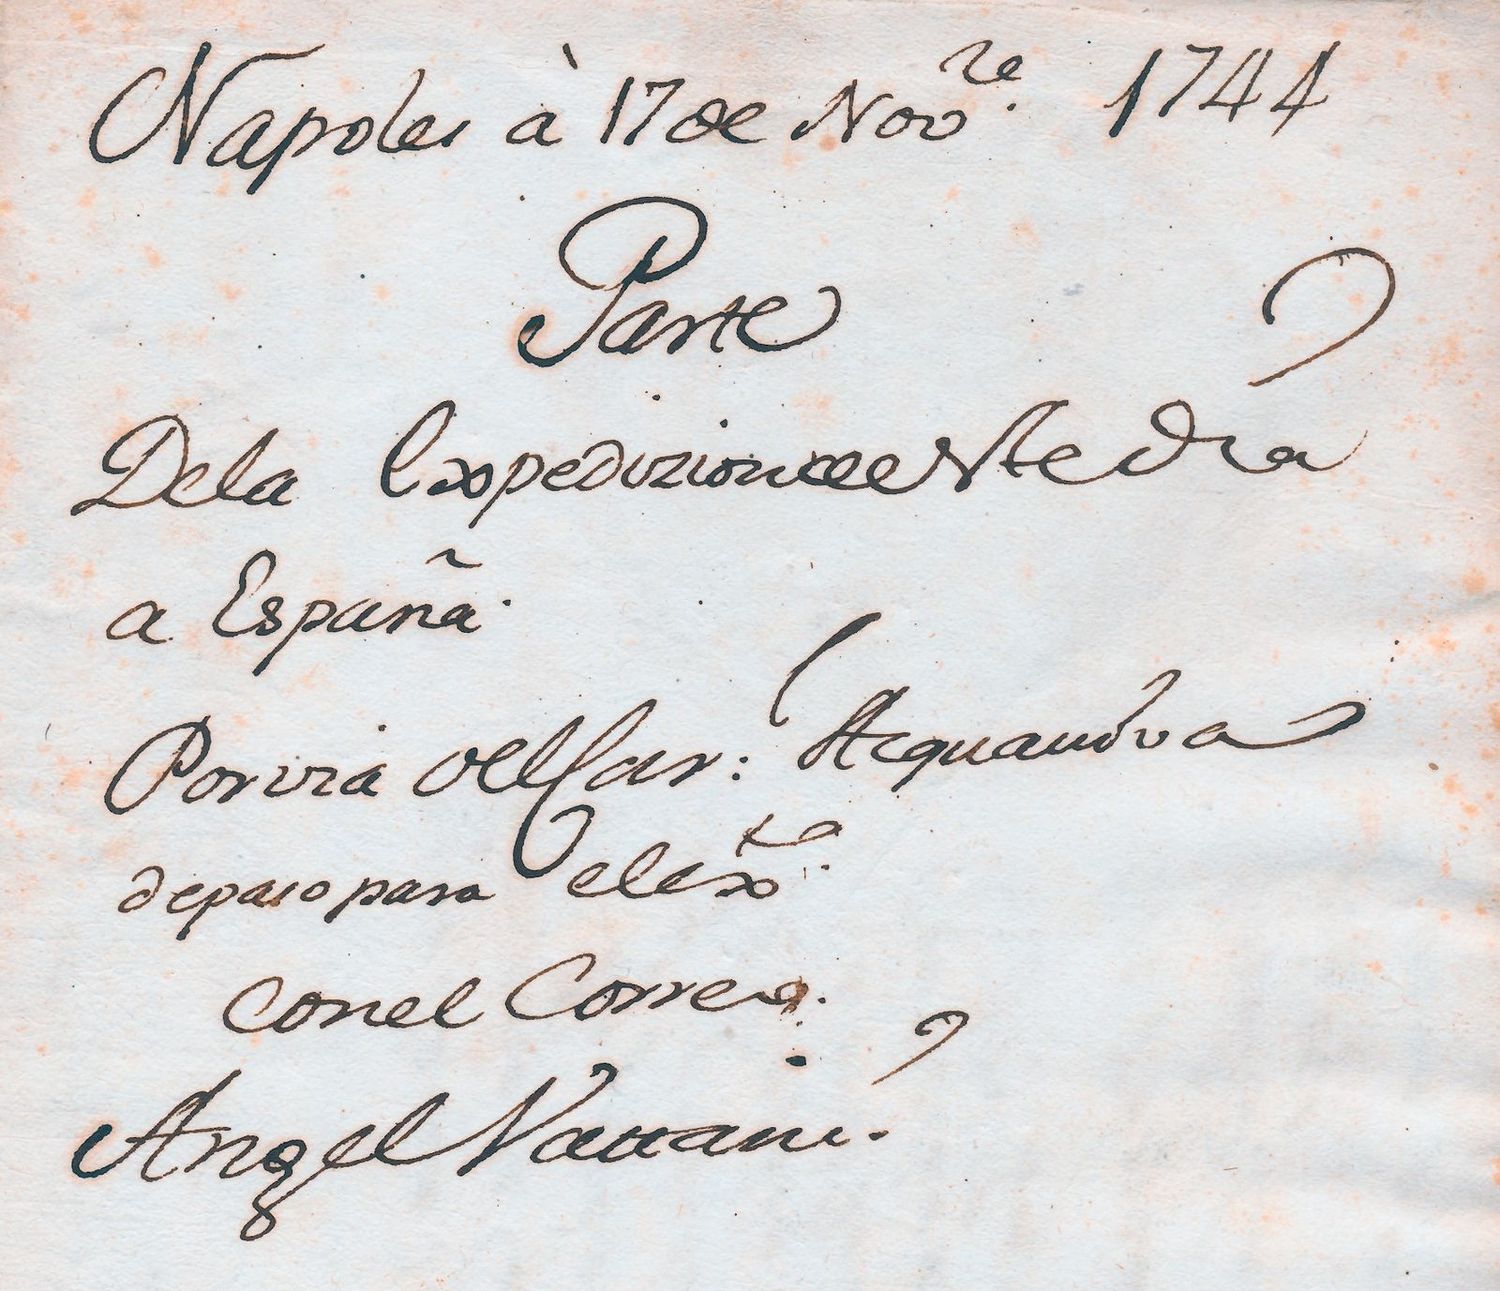 Napoles à 17 de Nov.re 1744
Parte
Dela Expedizion de este dia
a España.
Por via del Car: Acquaviva
de paso para el ex.to
con el Correo.
Angel Vattani.